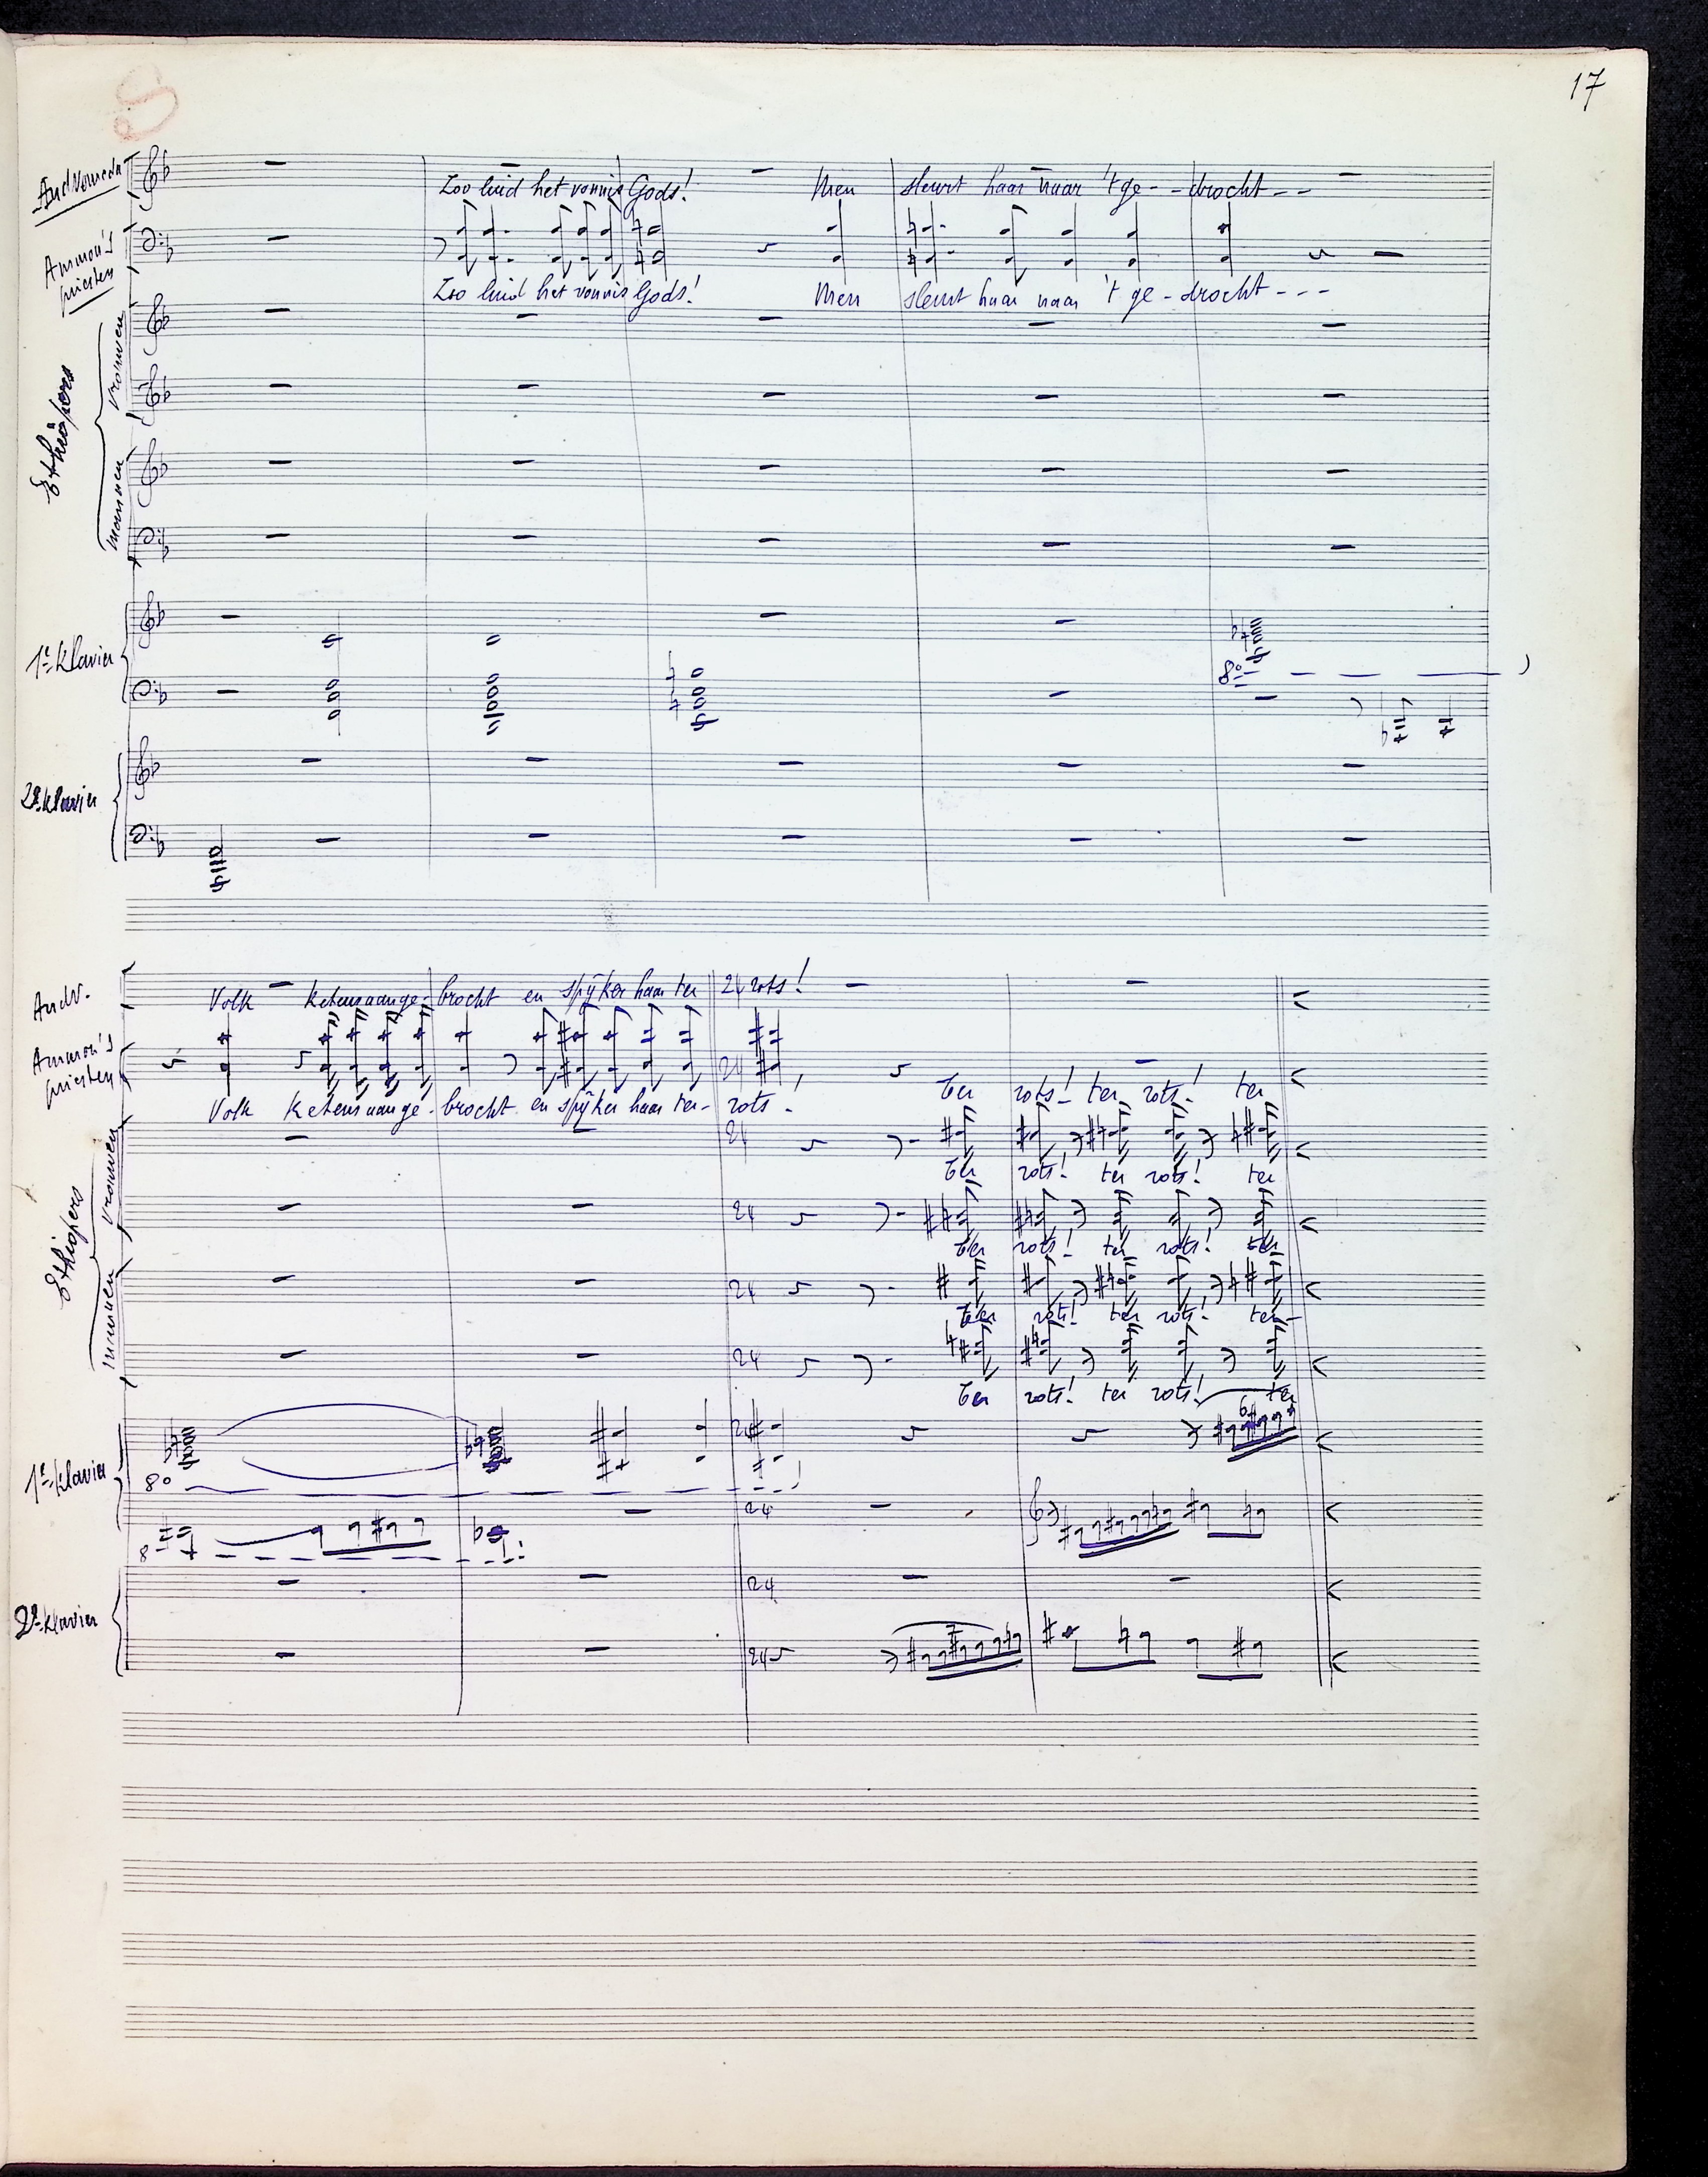 17
Andromeda
Zoo luid het vonnis Gods! Men sleurt haar naar 't ge - - drocht - -
Ammon's
priesters
Zoo luid het vonnis Gods! Men sleurt haar naar 't ge - drocht - - -
Ethiopers
vrouwen
mannen
1e klavier
8o
2e klavier
Andr.
Volk ketens aange - brocht en spijker haar ter rots!
24
Ammon's
priesters
24
Volk ketens aange - brocht en spijker haar ter - rots.
Ter rots! ter rots! ter
Ethiopers
vrouwen
24
Ter rots! ter rots! ter
24
Ter rots! ter rots! ter
mannen
24
Ter rots! ter rots! ter
24
Ter rots! ter rots! ter
1e klavier
24
6
8o
24
8
2e klavier
24
7
24